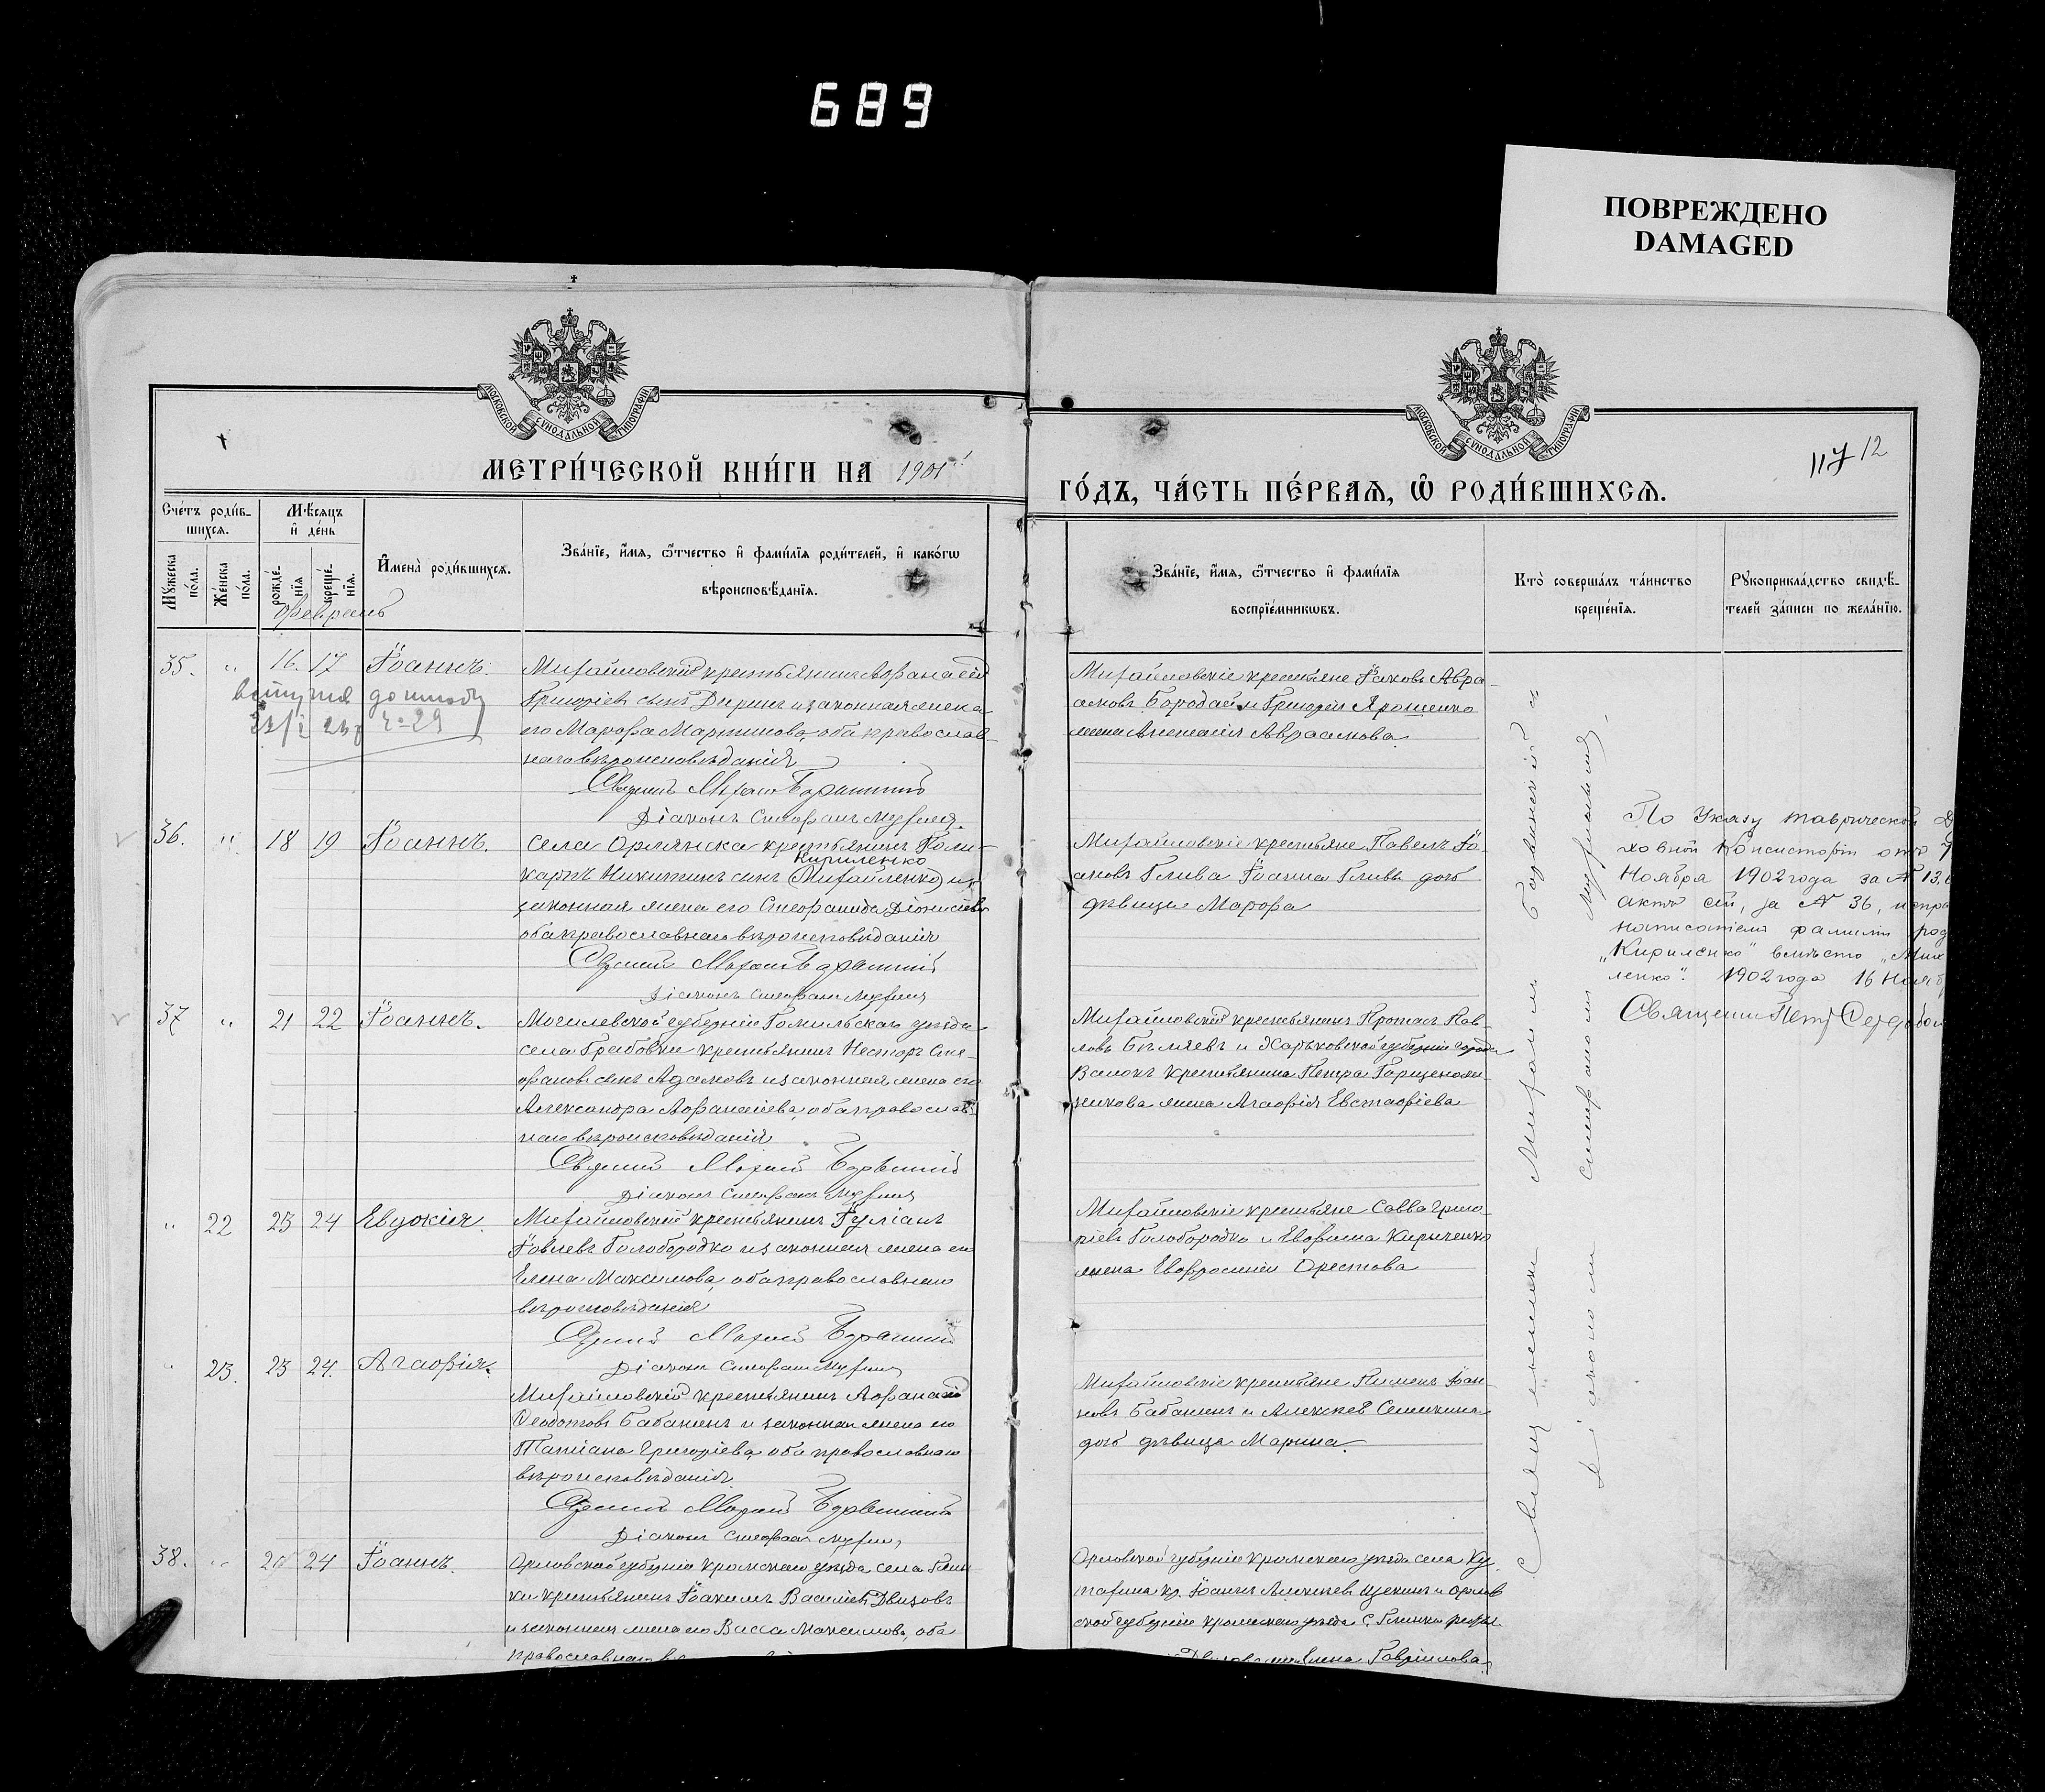 689
ПОВРЕЖДЕНО
DAMAGED
МОСКОВСКОЙ СѴНОДАЛЬНОЙ ТИПОГРАФІИ
МОСКОВСКОЙ СѴНОДАЛЬНОЙ ТИПОГРАФІИ
МЕТРИ́ЧЕСКОЙ КНИ́ГИ НА 1901
ГО́ДЪ, ЧА́СТЬ ПЕ́РВАѦ, Ѡ РОДИ́ВШИХСѦ.
117 12
Сче́тъ роди́в-
шихсѧ.
Мꙋжеска по́ла.
Же́нска по́ла.
Мѣ́сѧцъ
и де́нь
рожде́-
нїѧ
креще́-
нїѧ.
Имена̀ роди́вшихсѧ.
Зва́нїе, и́мѧ, ѻ́тчество и фами́лїѧ роди́телей, и како́гѡ
вѣроисповѣ́данїѧ.
Зва́нїе, и́мѧ, ѻ́тчество и фами́лїѧ
воспрїе́мникѡвъ.
Кто̀ соверша́лъ та́инство
креще́нїѧ.
Рꙋкоприкла́дство свидѣ́-
телей за́писи по жела́нїю.
Февраль
35. " 16. 17 Іоаннъ.
Михайловскій крестьянинъ Афанасій
Григоріевъ сынъ Диринъ и законная жена
его Марфа Мартинова, оба православ-
наго вѣроисповѣданія
Діаконъ Стефанъ
Михайловскіе крестьяне Іаковъ Авра-
амовъ Бородай и Григорія Ярошенко
жена Анастасія Авраамова.
36. " 18 19 Іоаннъ.
Села Орлянска крестьянинъ Поли-
Кириленко
карпъ Никитинъ сынъ (Михайленко) и
законная жена его Стефанида Діонисіева
оба православнаго вѣроисповѣданія
Діаконъ Стефанъ
Михайловскіе крестьяне Павелъ Іо-
анновъ Глива Іоанна Гливы дочь
дѣвица Марфа
По Указу Таврической
ховной Консисторіи отъ 7
Ноября 1902 года за № 13,
актъ сей, за № 36,
написаніемъ фамиліи род
„Кириленко" вмѣсто „Мих
ленко". 1902 года 16 Нояб
Священникъ Петръ
37 " 21 22 Іоаннъ.
Могилевской губерніи Гомельскаго уѣзда
села Грабовки крестьянинъ Несторъ Сте-
фановъ сынъ Адамовъ и законная жена его
Александра Афанасіева, оба православ-
наго вѣроисповѣданія
Діаконъ Стефанъ
Михайловскій крестьянинъ Протасъ Пав-
ловъ Бѣляевъ и Харьковской губерніи города
Валокъ крестьянина Петра
жена Агафія Евстафіева
" 22 23 24 Евдокія.
Михайловскій крестьянинъ Іуліанъ
Іовлевъ Голобородко и законная жена его
Елена Максимова, оба православнаго
вѣроисповѣданія
Діаконъ Стефанъ
Михайловскіе крестьяне Савва Григо-
ріевъ Голобородко и Евфима Кириченко
жена Евфросинія Орестова
" 23. 23 24. Агафія.
Михайловскій крестьянинъ Афанасій
Ѳеодотовъ Бабанинъ и законная жена его
Татіана Григоріева, оба православнаго
вѣроисповѣданія
Діаконъ Стефанъ
Михайловскіе крестьяне Пименъ Іоан-
новъ Бабанинъ и Алексѣя Семикина
дочь дѣвица Марина.
38. " 24 Іоаннъ.
Орловской губерніи Кромскаго уѣзда села Глин-
ки крестьянинъ Іоакимъ Василіевъ Двизовъ
и законная жена его Васса Максимова, оба
православнаго
Орловской губерніи Кромскаго уѣзда села
кр. Іоаннъ Алексѣевъ Щекинъ и Орлов-
ской губерніи Кромскаго уѣзда с. Глинки
жена Елена Гавріилова